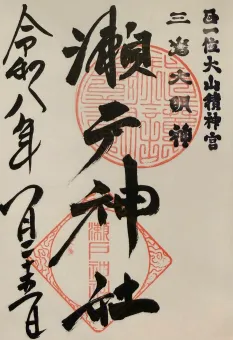 正一位大山積神宮
三嶋大明神
瀬戸神社
令和八年
一月二十五日
瀬戸神社